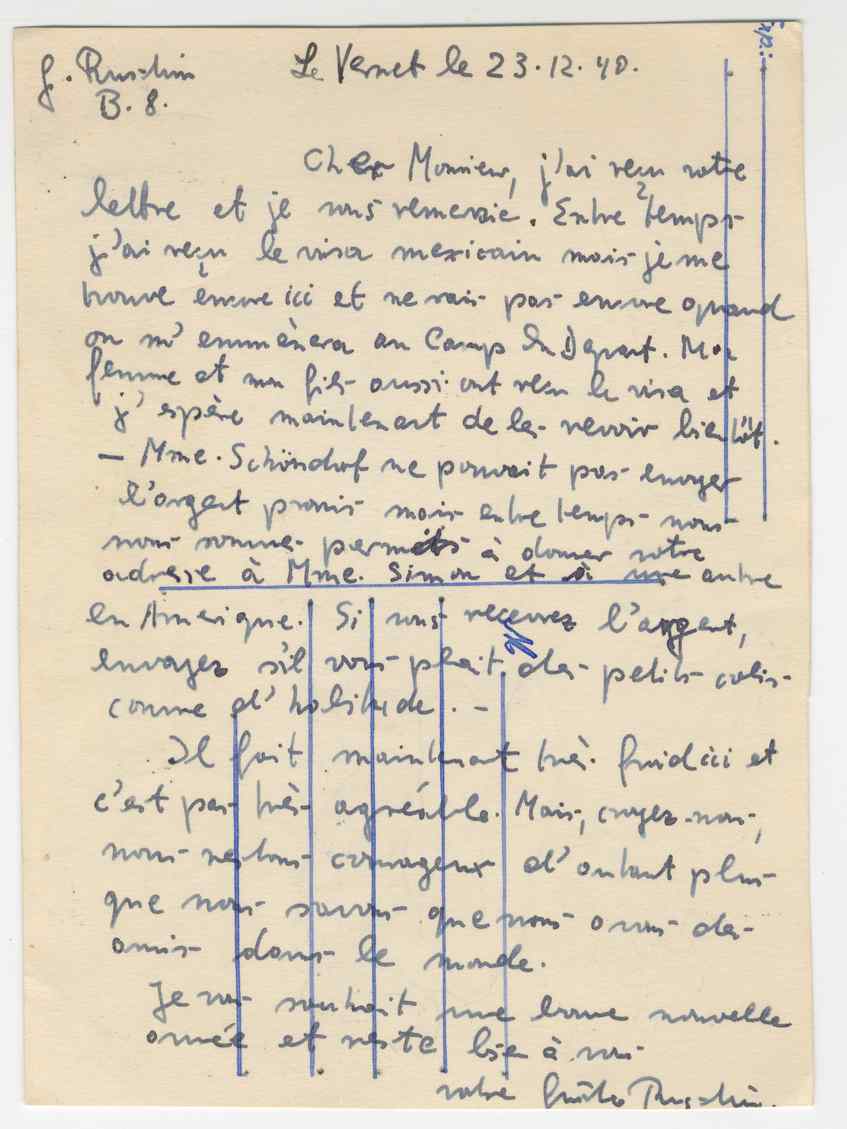 Exp:
G. Ruschin Le Vernet le 23.12.40.
B. 8.
Cher Monsieur, j'ai reçu votre
lettre et je vous remercie. Entre temps
j'ai reçu le visa mexicain mais je me
trouve encore ici et ne sais pas encore quand
on m'emmènera au Camp du Depart. Ma
femme et mon fils aussi ont reçu le visa et
j'espère maintenant de les revoir bientôt.
– Mme. Schöndorf ne pouvait pas envoyer
l'argent promis mais entre temps nous
nous sommes permets à donner votre
adresse à Mme. Simon et à une autre
en Amerique. Si vous recevrez l'argent,
envoyez s'il vous plait des petits colis
comme d'habitude. –
Il fait maintenant très froid ici et
c'est pas très agréable. Mais, croyez-nous,
nous restons courageux d'autant plus
que nous savons que nous avons des
amis dans le monde.
Je vous souhait une bonne nouvelle
année et reste bien à vous
votre Ruschin.